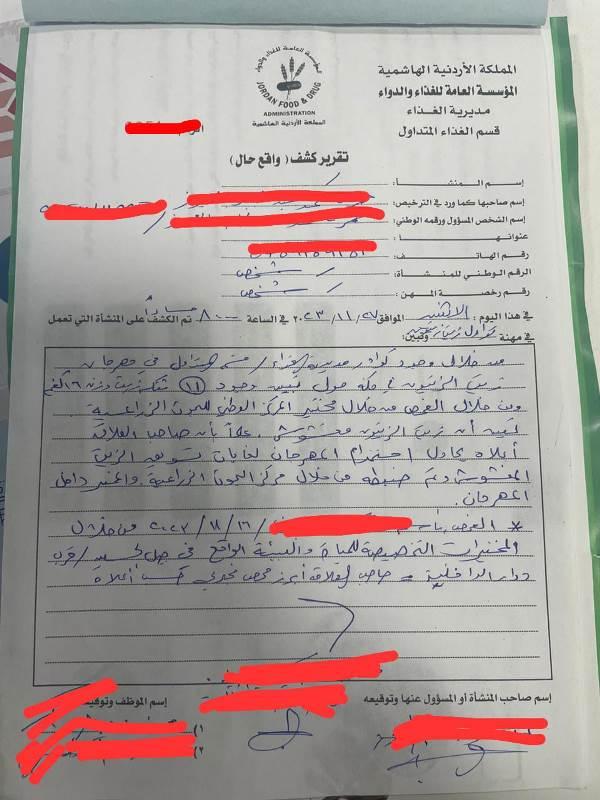 المملكة الأردنية الهاشمية
المؤسسة العامة للغذاء والدواء
مديرية الغذاء
قسم الغذاء المتداول
المؤسسة العامة للغذاء والدواء
JORDAN FOOD & DRUG
ADMINISTRATION
المملكة الأردنية الهاشمية
تقرير كشف ( واقع حال )
إسم المنشأة:
إسم صاحبها كما ورد في الترخيص:
إسم الشخص المسؤول ورقمه الوطني:
عنوانها:
رقم الهاتف:
الرقم الوطني للمنشأة: شخص
رقم رخصة المهن: شخص
في هذا اليوم: الاثنين الموافق ٢٠٢٣/١١/٢٧ في الساعة ٨:٠٠ مساءً تم الكشف على المنشأة التي تعمل
في مهنة وتبين:
من خلال وجود كوادر مديرية الغذاء / قسم المتداول في مهرجان
زيت الزيتون في مكة مول تبين وجود (١١) تنكة زيت وزن ١٦ كغم
ومن خلال الفحص من خلال مختبر المركز الوطني للبحوث الزراعية
تبين أن زيت الزيتون مغشوش. علماً بأن صاحب العلاقة
أعلاه يحاول استخدام المهرجان لغايات تسويق الزيت
المغشوش وتم ضبطه من خلال مركز البحوث الزراعية والمختبر داخل
المهرجان.
* الفحص باسم / ٢٠٢٣/١١/١٦ من خلال
المختبرات التخصصية للمياه والبيئة الواقع في جبل الحسين / قرب
دوار الداخلية - صاحب العلاقة أبرز فحص مخبري حسب أعلاه
إسم صاحب المنشأة أو المسؤول عنها وتوقيعه
إسم الموظف وتوقيعه
(١
(٢